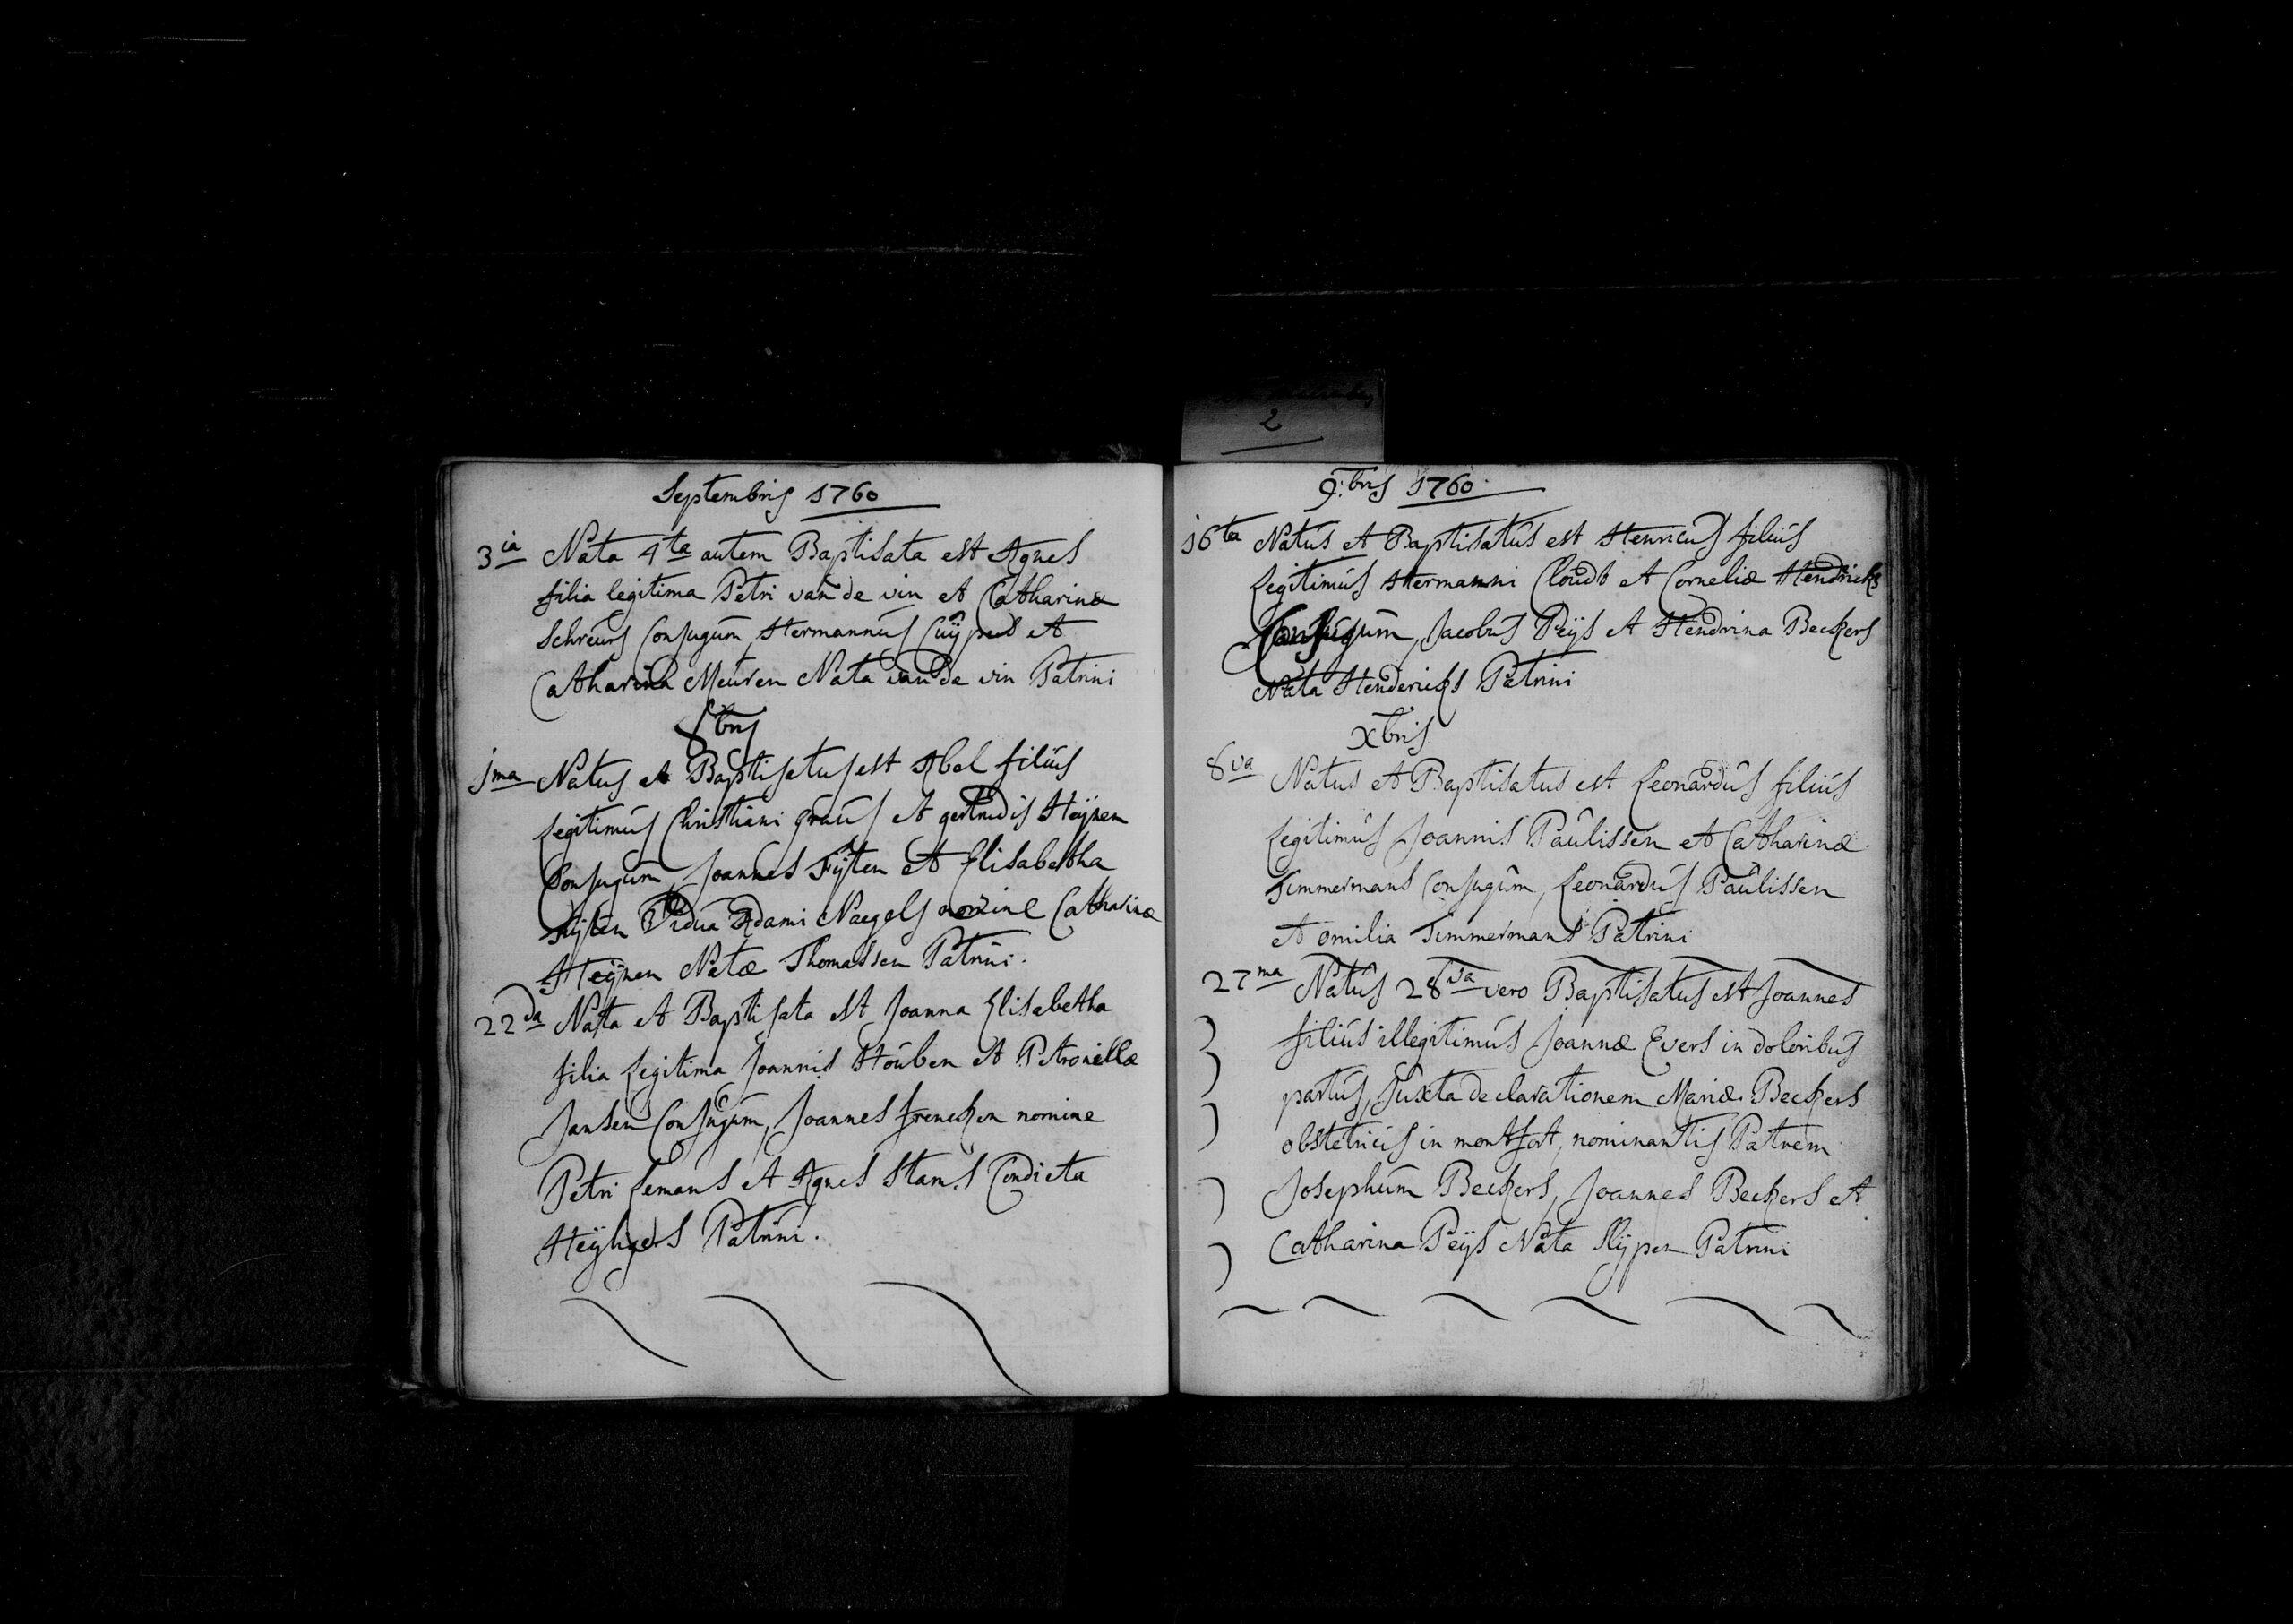 2
Septembris 1760
3ia Nata 4ta autem Baptisata est Agnes
filia legitima Petri van de vin et Catharinæ
Schreurs Conjugum, Hermannus Cuÿpers et
Catharina Meuren Nata van de vin Patrini
8bris
1ma Natus et Baptisatus est Abel filius
Legitimus Christiani et gertrudis Heÿnen
Conjugum, Joannes Fÿten et Elisabetha
Fÿten Vidua Adami Naegels nomine Catharinæ
Heÿnen Natæ Thomassen Patrini.
22da Nata et Baptisata est Joanna Elisabetha
filia Legitima Joannis Houben et Petronillæ
Jansen Conjugum, Joannes frencken nomine
Petri Lemans et Agnes Stams Condicta
Heÿligers Patrini.
9:bris 1760.
16ta Natus et Baptisatus est Henricus filius
Legitimus Hermanni Cloudt et Corneliæ Hendricks
Conjugum, Jacobus Peÿs et Hendrina Beckers
Nata Hendericks Patrini
Xbris
8va Natus et Baptisatus est Leonardus filius
Legitimus Joannis Paulissen et Catharinæ
Timmermans Conjugum, Leonardus Paulissen
et omilia Timmermans Patrini
27ma Natus 28va vero Baptisatus est Joannes
filius illegitimus Joannæ Evers in doloribus
partus, Juxta declarationem Mariæ Beckers
obstetricis in montfort, nominantis Patrem
Josephum Beckers, Joannes Beckers et
Catharina Peÿs Nata Slÿpen Patrini